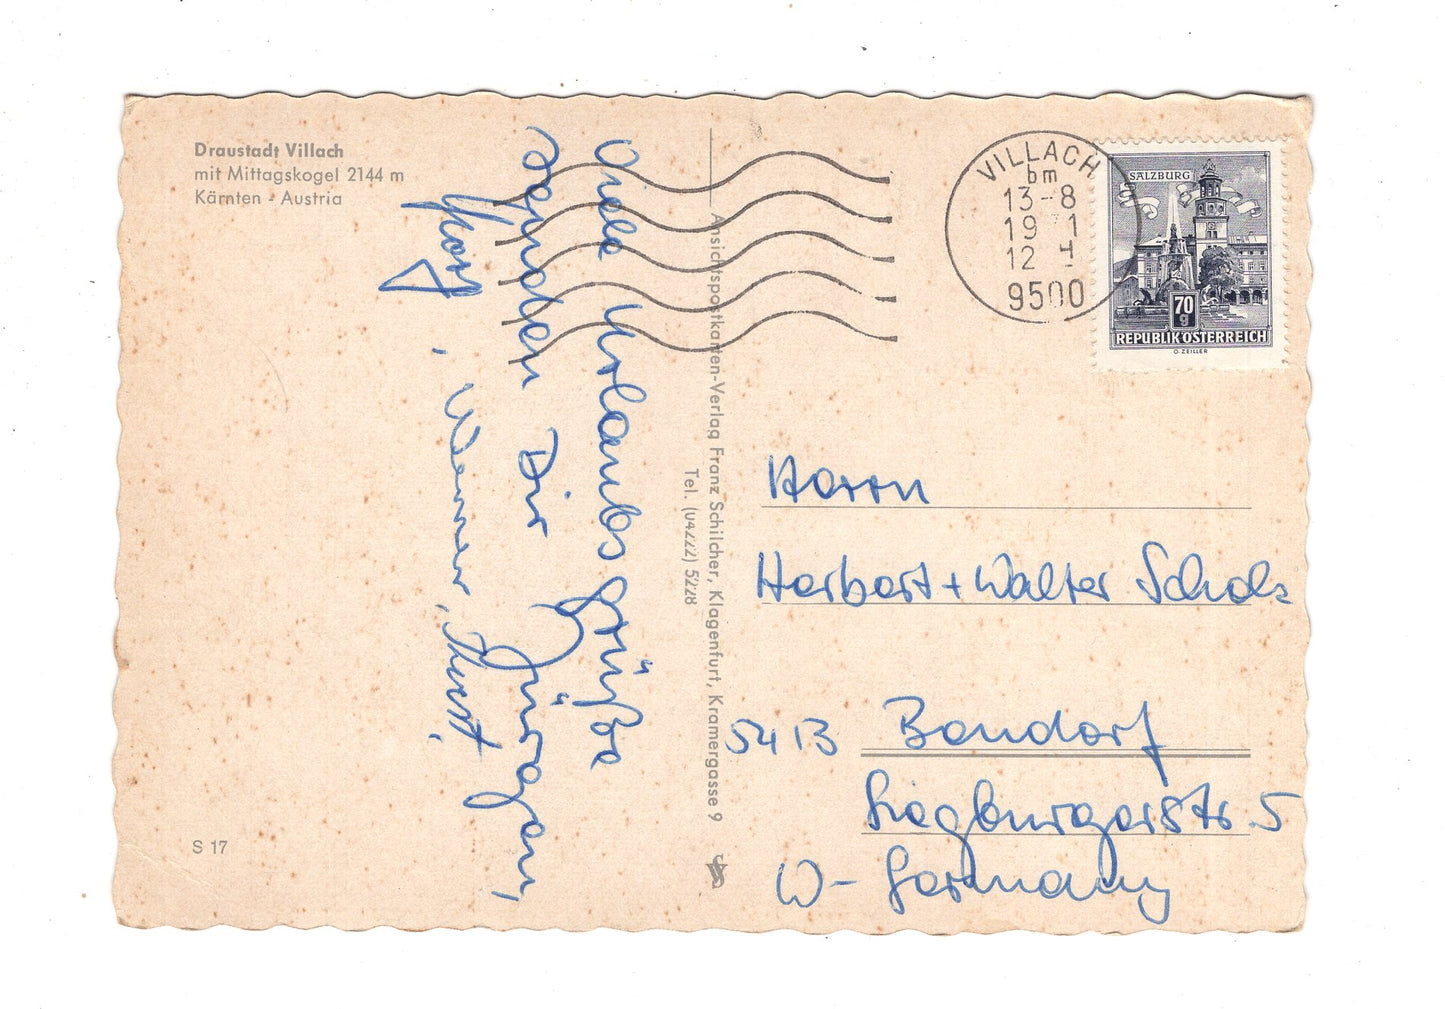 Draustadt Villach
mit Mittagskogel 2144 m
Kärnten - Austria
Viele Urlaubsgrüße
senden Dir Jürgen,
Werner, Horst.
Ansichtspostkarten-Verlag Franz Schilcher, Klagenfurt, Kramergasse 9
Tel. (04222) 5228
S 17
VILLACH
bm
13-8
19 1
12
9500
SALZBURG
70
g
REPUBLIK ÖSTERREICH
O. ZEILLER
Herrn
Herbert + Walter Scholz
5413 Bendorf
Siegburgerstr. 5
W- Germany